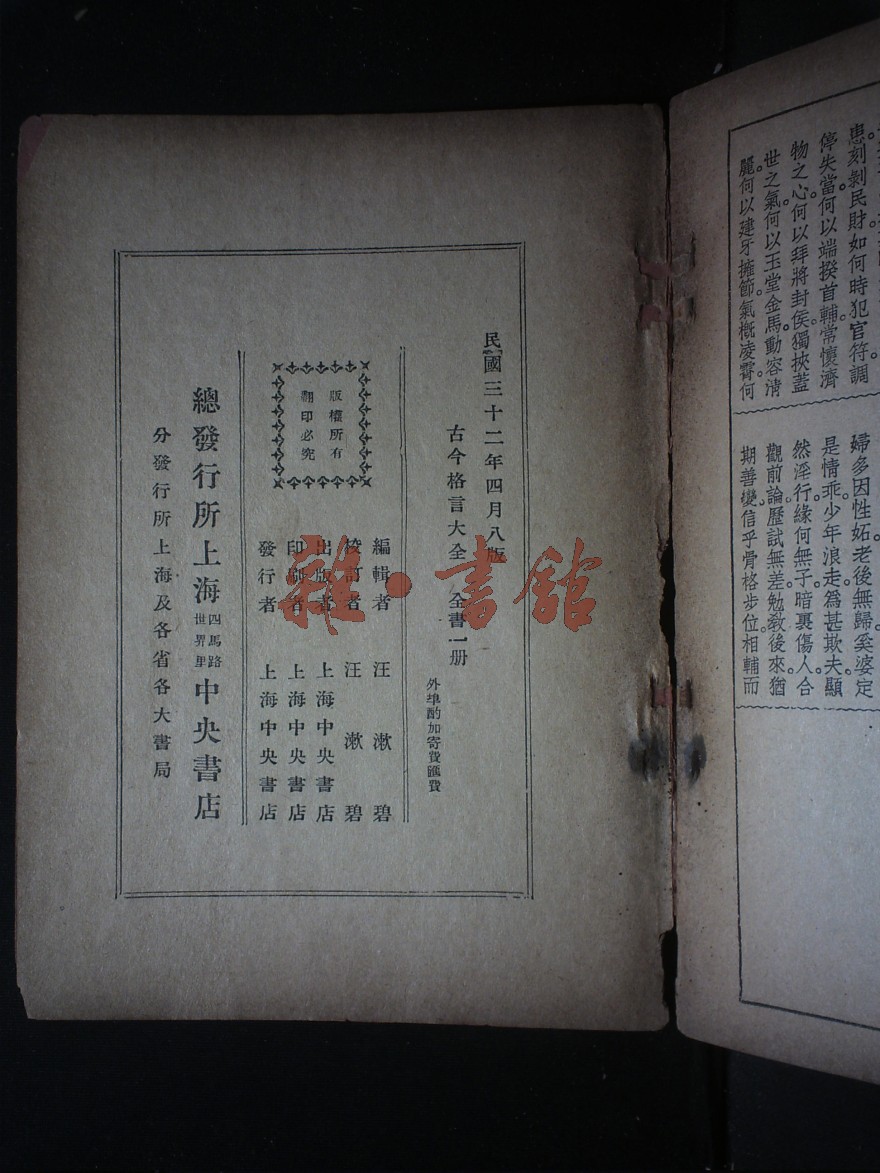 患刻剝民財如何時犯官符調
停失當何以端揆首輔常懷濟
物之心何以拜將封侯獨挾蓋
世之氣何以玉堂金馬動容清
麗何以建牙擁節氣槪凌霄何
婦多因性妬老後無歸奚婆定
是情乖少年浪走爲甚欺夫顯
然淫行緣何無子暗裏傷人合
觀前論歷試無差勉敎後來猶
期善變信乎骨格步位相輔而
民國三十二年四月八版
古今格言大全 全書一册
外埠酌加寄費匯費
編輯者 汪漱碧
校訂者 汪漱碧
出版者 上海中央書店
印刷者 上海中央書店
發行者 上海中央書店
版權所有
翻印必究
總發行所上海四馬路世界里中央書店
分發行所上海及各省各大書局
雜·書館